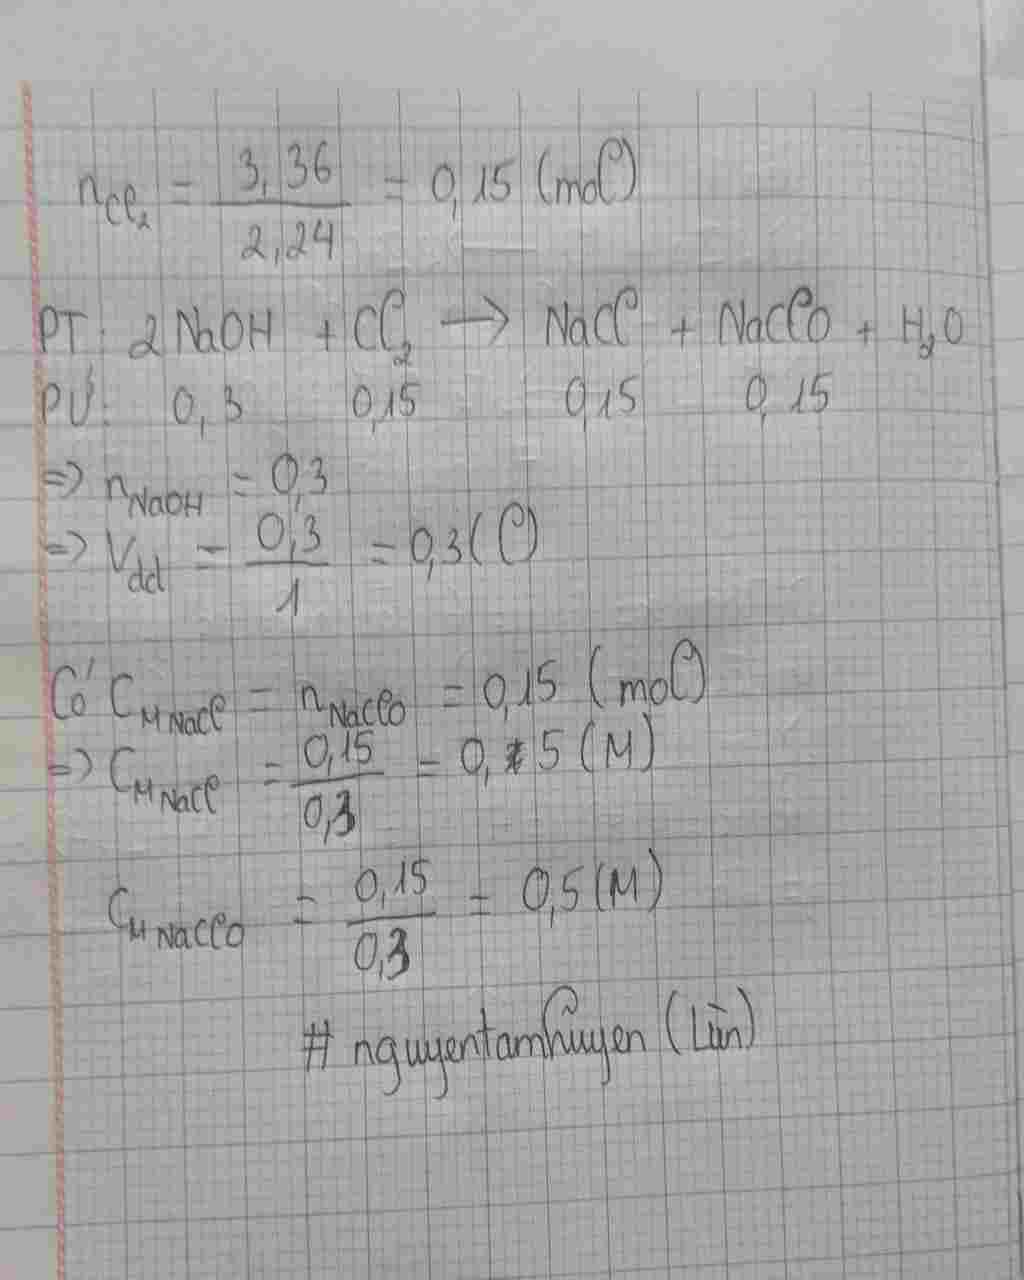 nCl₂ = 3,36 / 2,24 = 0,15 (mol)
PT: 2 NaOH + Cl₂ → NaCl + NaClO + H₂O
PƯ: 0,3 0,15 0,15 0,15
=> nNaOH = 0,3
=> Vdd = 0,3 / 1 = 0,3 (l)
Có CM NaCl = nNaClO = 0,15 (mol)
=> CM NaCl = 0,15 / 0,3 = 0,5 (M)
CM NaClO = 0,15 / 0,3 = 0,5 (M)
# nguyentamhuyen (Lùn)